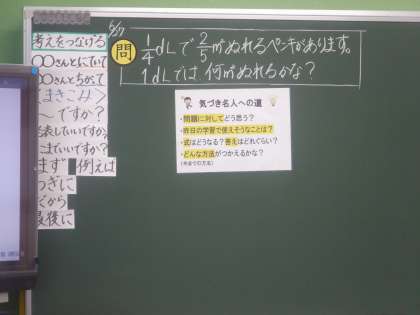 6/7
考えをつなげる
〇〇さんとにていて
〇〇さんとちがって
まきこみ
～ですか?
表していいですか
こまでいいですか?
まず 例えば
つぎに
だから
最後に
問 1/4dLで2/5㎡ぬれるペンキがあります。
1dLでは何㎡ぬれるかな?
気づき名人への道
・問題に対してどう思う?
・昨日の学習で使えそうなことは?
・式はどうなる?答えはどれぐらい?
・どんな方法がつかえるかな?
(今までの方法)